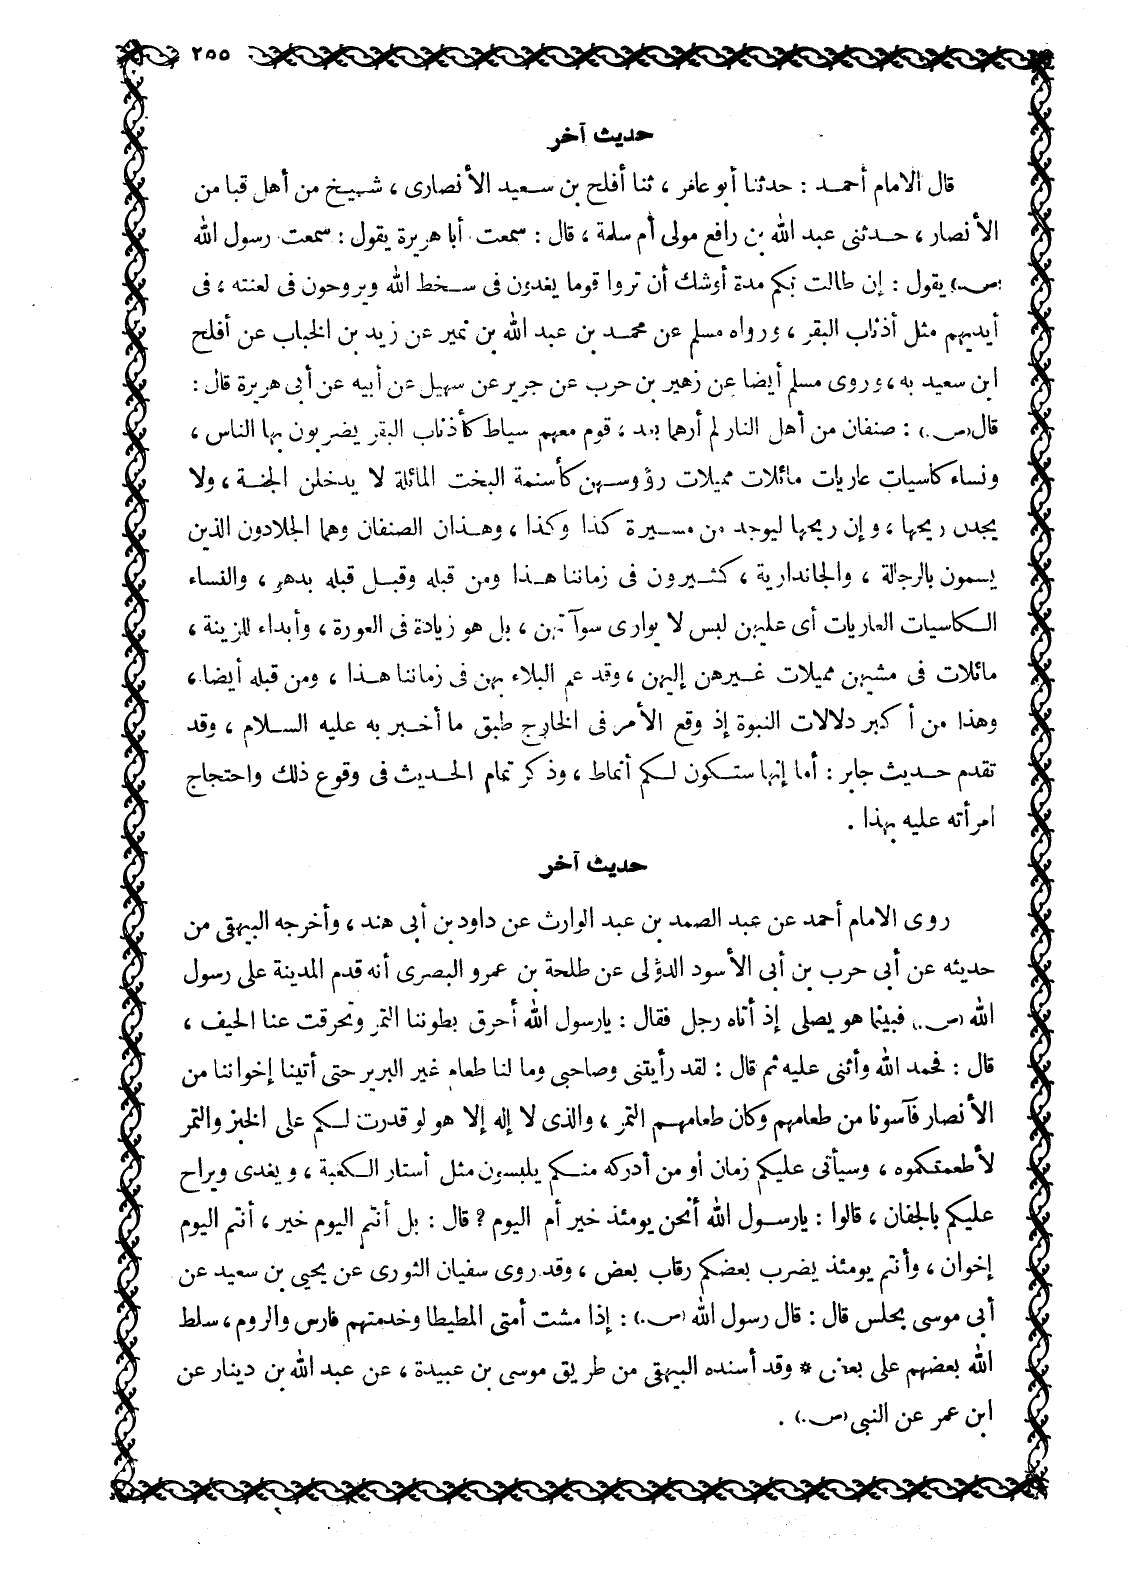 ٢٥٥
حديث آخر
قال الامام أحمد : حدثنا أبو عامر ، ثنا أفلح بن سعيد الأنصارى ، شيخ من أهل قبا من
الأنصار ، حدثنى عبد الله بن رافع مولى أم سلمة ، قال : سمعت أبا هريرة يقول : سمعت رسول الله
(ص.) يقول : إن طالت بكم مدة أوشك أن تروا قوما يغدون فى سخط الله ويروحون فى لعنته ، فى
أيديهم مثل أذناب البقر ، ورواه مسلم عن محمد بن عبد الله بن نمير عن زيد بن الخباب عن أفلح
ابن سعيد به ، وروى مسلم أيضا عن زهير بن حرب عن جرير عن سهيل عن أبيه عن أبى هريرة قال :
قال (ص.) : صنفان من أهل النار لم أرهما بعد ، قوم معهم سياط كأذناب البقر يضربون بها الناس ،
ونساء كاسيات عاريات مائلات مميلات رؤوسهن كأسنمة البخت المائلة لا يدخلن الجنة ، ولا
يجدن ريحها ، وإن ريحها ليوجد من مسيرة كذا وكذا ، وهذان الصنفان وهما الجلادون الذين
يسمون بالرجالة ، والجاندارية ، كثيرون فى زماننا هذا ومن قبله وقبل قبله بدهر ، والنساء
الكاسيات العاريات أى عليهن لبس لا يوارى سوآتهن ، بل هو زيادة فى العورة ، وأبداء للزينة ،
مائلات فى مشيهن مميلات غيرهن إليهن ، وقد عم البلاء بهن فى زماننا هذا ، ومن قبله أيضا ،
وهذا من أكبر دلالات النبوة إذ وقع الأمر فى الخارج طبق ما أخبر به عليه السلام ، وقد
تقدم حديث جابر : أما إنها ستكون لكم أنماط ، وذكر تمام الحديث فى وقوع ذلك واحتجاج
امرأته عليه بهذا .
حديث آخر
روى الامام أحمد عن عبد الصمد بن عبد الوارث عن داود بن أبى هند ، وأخرجه البيهقى من
حديثه عن أبى حرب بن أبى الأسود الدؤلى عن طلحة بن عمرو البصرى أنه قدم المدينة على رسول
الله (ص.) فبينما هو يصلى إذ أتاه رجل فقال : يارسول الله أحرق بطوننا التمر وتحرقت عنا الحيف ،
قال : فحمد الله وأثنى عليه ثم قال : لقد رأيتنى وصاحبى وما لنا طعام غير البرير حتى أتينا إخواننا من
الأنصار فآسونا من طعامهم وكان طعامهم التمر ، والذى لا إله إلا هو لو قدرت لكم على الخبز والتمر
لأطعمتكموه ، وسيأتى عليكم زمان أو من أدركه منكم يلبسون مثل أستار الكعبة ، ويغدى ويراح
عليكم بالجفان ، قالوا : يارسول الله أنحن يومئذ خير أم اليوم ؟ قال : بل أنتم اليوم خير ، أنتم اليوم
إخوان ، وأنتم يومئذ يضرب بعضكم رقاب بعض ، وقد روى سفيان الثورى عن يحيى بن سعيد عن
أبى موسى بحلس قال : قال رسول الله (ص.) : إذا مشت أمتى المطيطا وخدمتهم فارس والروم ، سلط
الله بعضهم على بعض * وقد أسنده البيهقى من طريق موسى بن عبيدة ، عن عبد الله بن دينار عن
ابن عمر عن النبى (ص.) .